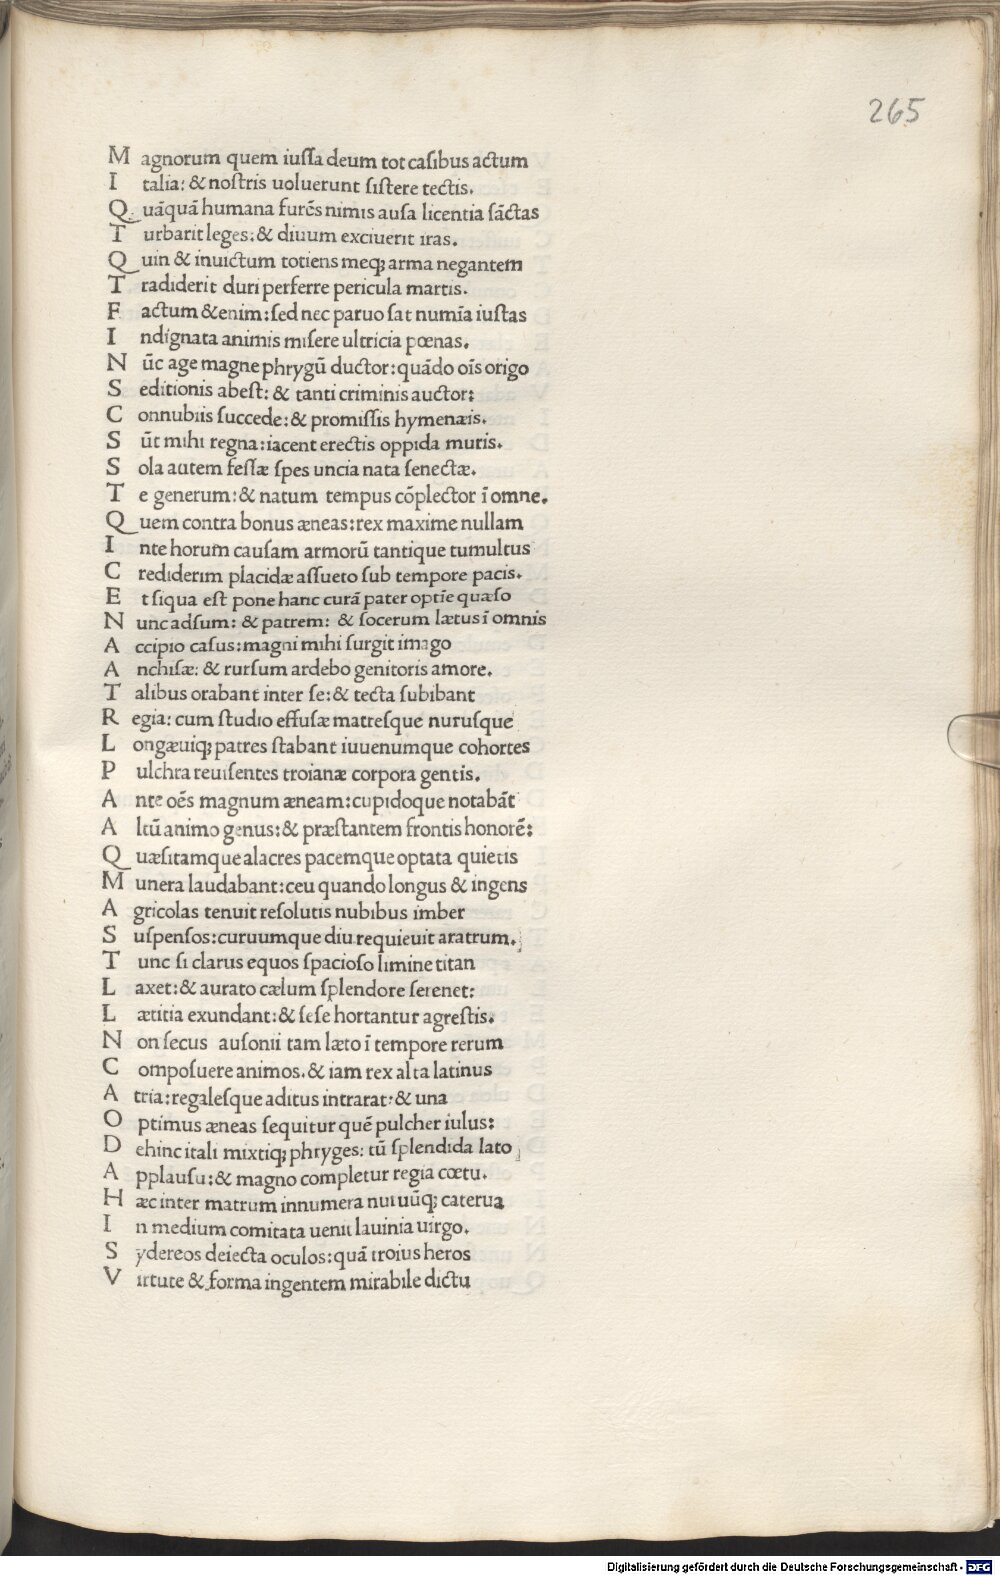 265
Magnorum quem iussa deum tot casibus actum
Italia: & nostris uoluerunt sistere tectis.
Quāquā humana furēs nimis ausa licentia sāctas
Turbarit leges: & diuum exciuerit iras.
Quin & inuictum totiens meq; arma negantem
Tradiderit duri perferre pericula martis.
Factum & enim: sed nec paruo sat numīa iustas
Indignata animis misere ultricia pœnas.
Nūc age magne phrygū ductor: quādo oīs origo
Seditionis abest: & tanti criminis auctor:
Connubiis succede: & promissis hymenæis.
Sūt mihi regna: iacent erectis oppida muris.
Sola autem fessæ spes uncia nata senectæ.
Te generum: & natum tempus cōplector ī omne.
Quem contra bonus æneas: rex maxime nullam
Inte horum causam armorū tantique tumultus
Crediderim placidæ assueto sub tempore pacis.
Et siqua est pone hanc curā pater optīe quæso
Nunc adsum: & patrem: & socerum lætus ī omnis
Accipio casus: magni mihi surgit imago
Anchisæ: & rursum ardebo genitoris amore.
Talibus orabant inter se: & tecta subibant
Regia: cum studio effusæ matresque nurusque
Longæuiq; patres stabant iuuenumque cohortes
Pulchra reuisentes troianæ corpora gentis.
Ante oēs magnum æneam: cupidoque notabāt
Altū animo genus: & præstantem frontis honorē:
Quæsitamque alacres pacemque optata quietis
Munera laudabant: ceu quando longus & ingens
Agricolas tenuit resolutis nubibus imber
Suspensos: curuumque diu requieuit aratrum.
Tunc si clarus equos spacioso limine titan
Laxet: & aurato cælum splendore serenet:
Lætitia exundant: & sese hortantur agrestis.
Non secus ausonii tam læto ī tempore rerum
Composuere animos. & iam rex alta latinus
Atria: regalesque aditus intrarat: & una
Optimus æneas sequitur quē pulcher iulus:
Dehinc itali mixtiq; phryges: tū splendida lato
Applausu: & magno completur regia cœtu.
Hæc inter matrum innumera nuiuūq; caterua
In medium comitata uenit lauinia uirgo.
Sydereos deiecta oculos: quā troius heros
Virtute & forma ingentem mirabile dictu
Digitalisierung gefördert durch die Deutsche Forschungsgemeinschaft - DFG